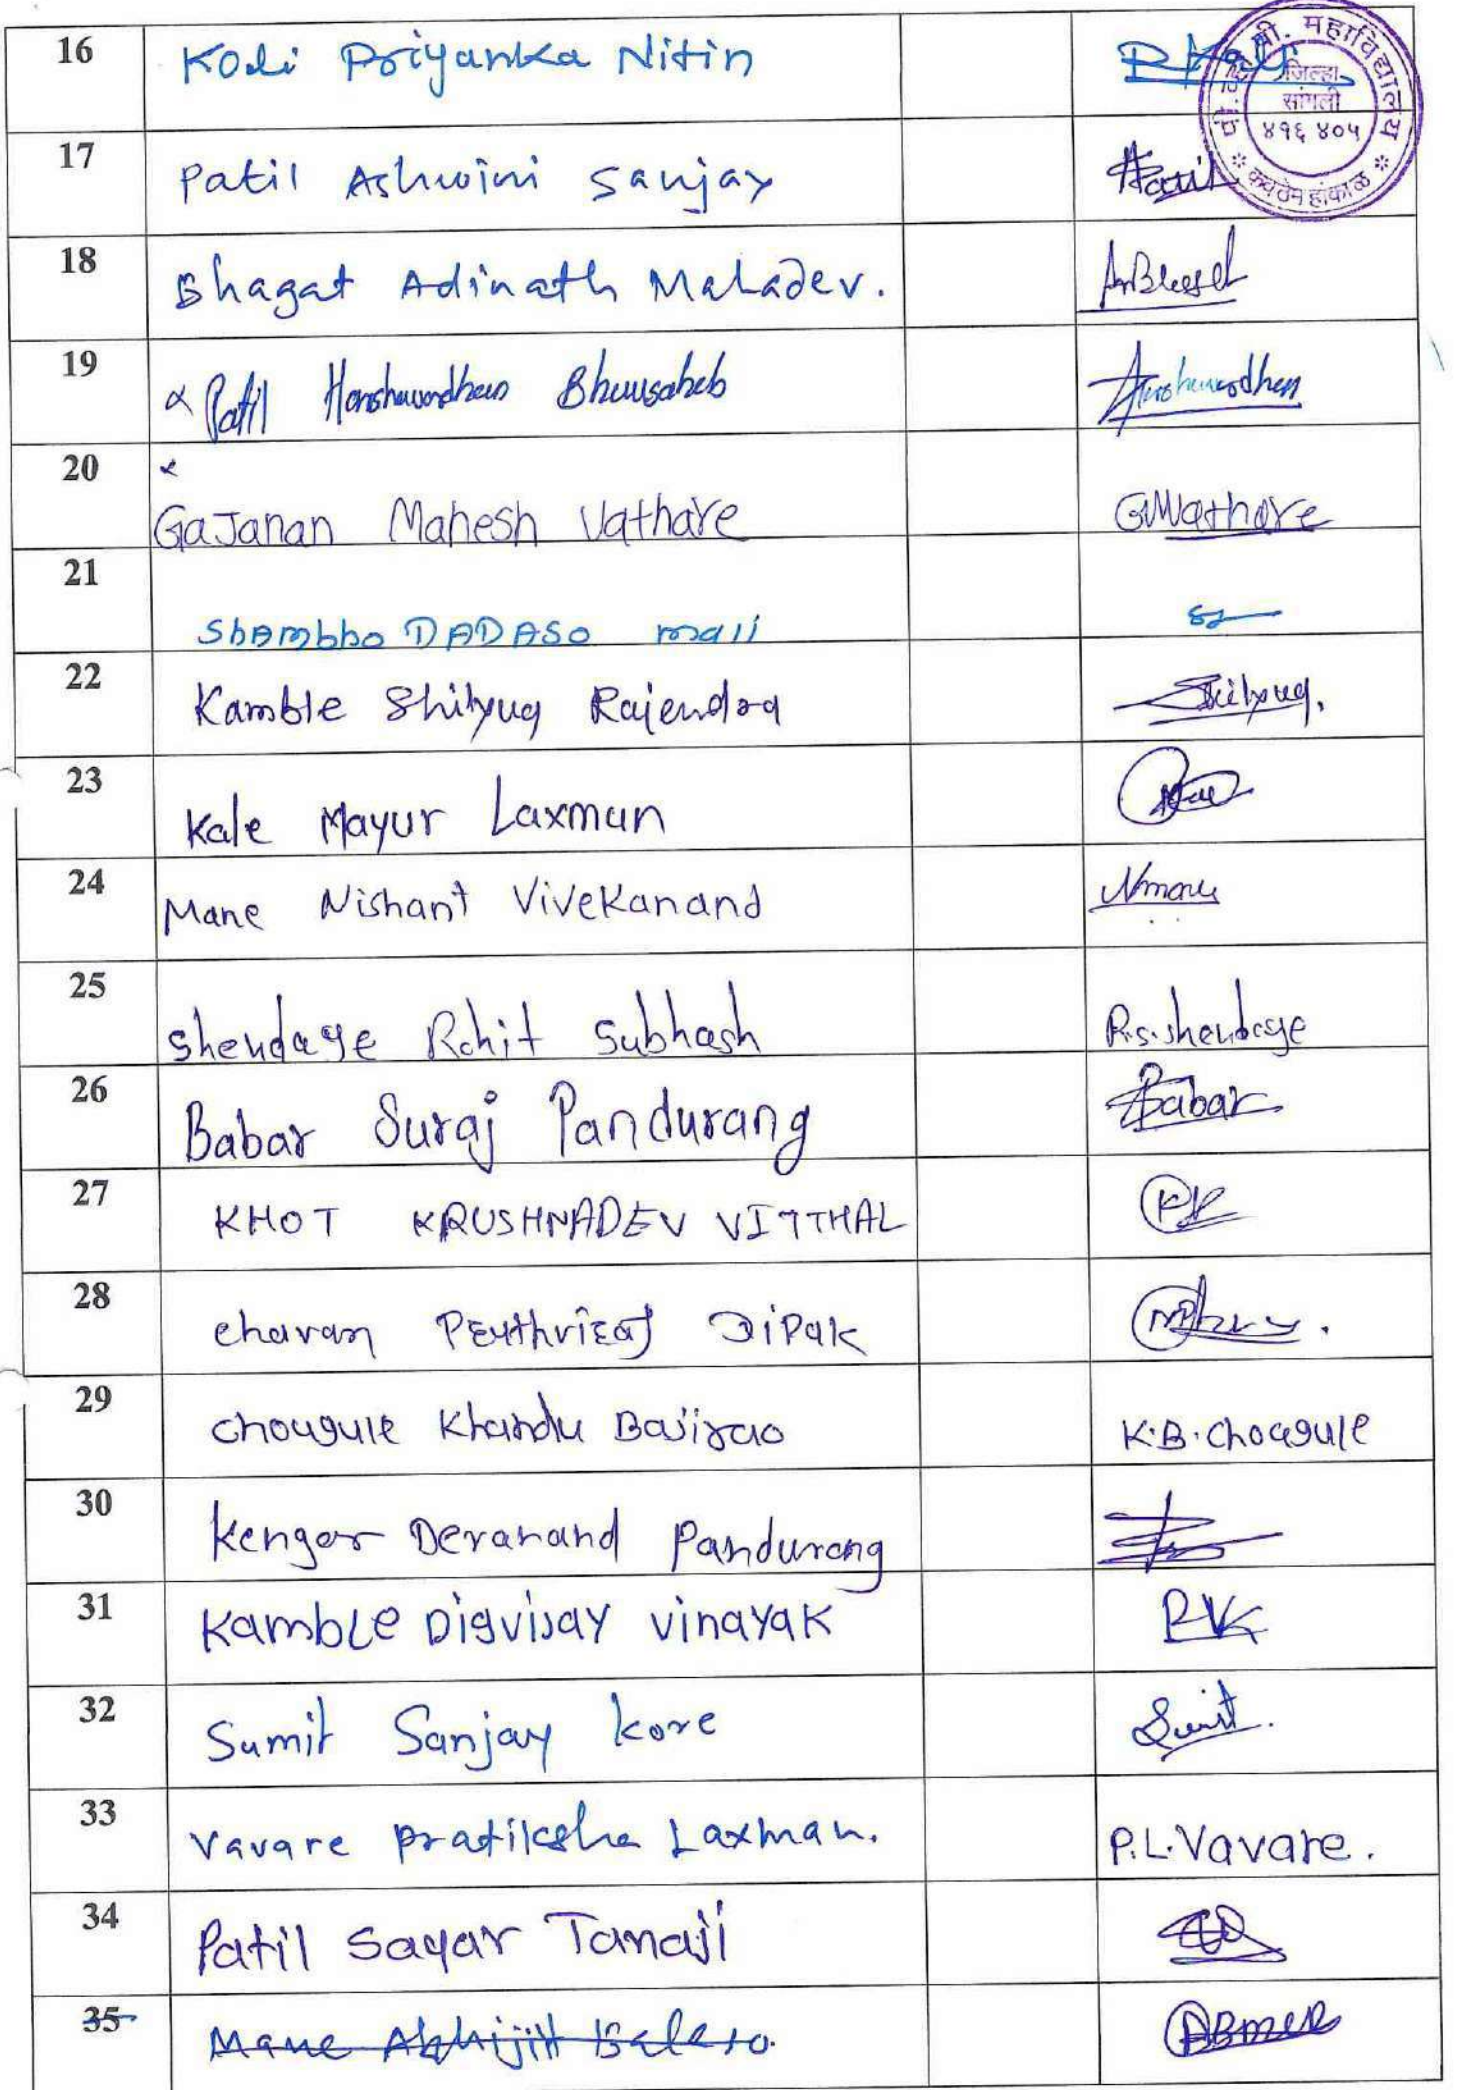 16 Koli Priyanka Nitin
17 Patil Ashwini Sanjay
18 Bhagat Adinath Mahadev.
19 Patil Harshawardhan Bhausaheb Harshawardhan
20 GaJanan Mahesh Vathare GMVathare
21 ShAmbho DADASO mali
22 Kamble Shilyug Rajendra Shilyug.
23 Kale Mayur Laxman
24 Mane Nishant Vivekanand Nmane
25 Shendage Rohit Subhash R.S.Shendage
26 Babar Suraj Pandurang Babar
27 KHOT KRUSHNADEV VITTHAL KK
28 chavan Dipak
29 chougule Khandu Bajirao K.B.Chougule
30 Kengar Devanand Pandurang
31 Kamble Digvijay vinayak
32 Sumit Sanjay kore Sumit.
33 Vavare pratiksha Laxman. P.L.Vavare.
34 Patil Sagar Tanaji
35 Mane Abhijit Balaso.
महाविद्यालय
जिल्हा
सांगली
४१६ ४०५
कवठेमहांकाळ